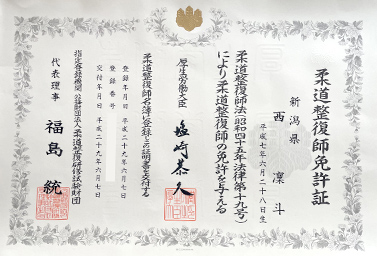 柔道整復師免許証
新潟県
西 凜斗
平成七年六月二十八日生
柔道整復師法(昭和四十五年法律第十九号)
により柔道整復師の免許を与える
厚生労働大臣 塩崎恭久
柔道整復師名簿に登録したとの証明書を交付する
登録年月日 平成二十九年六月七日
登録番号
交付年月日 平成二十九年六月七日
指定登録機関 公益財団法人柔道整復研修試験財団
代表理事 福島 統